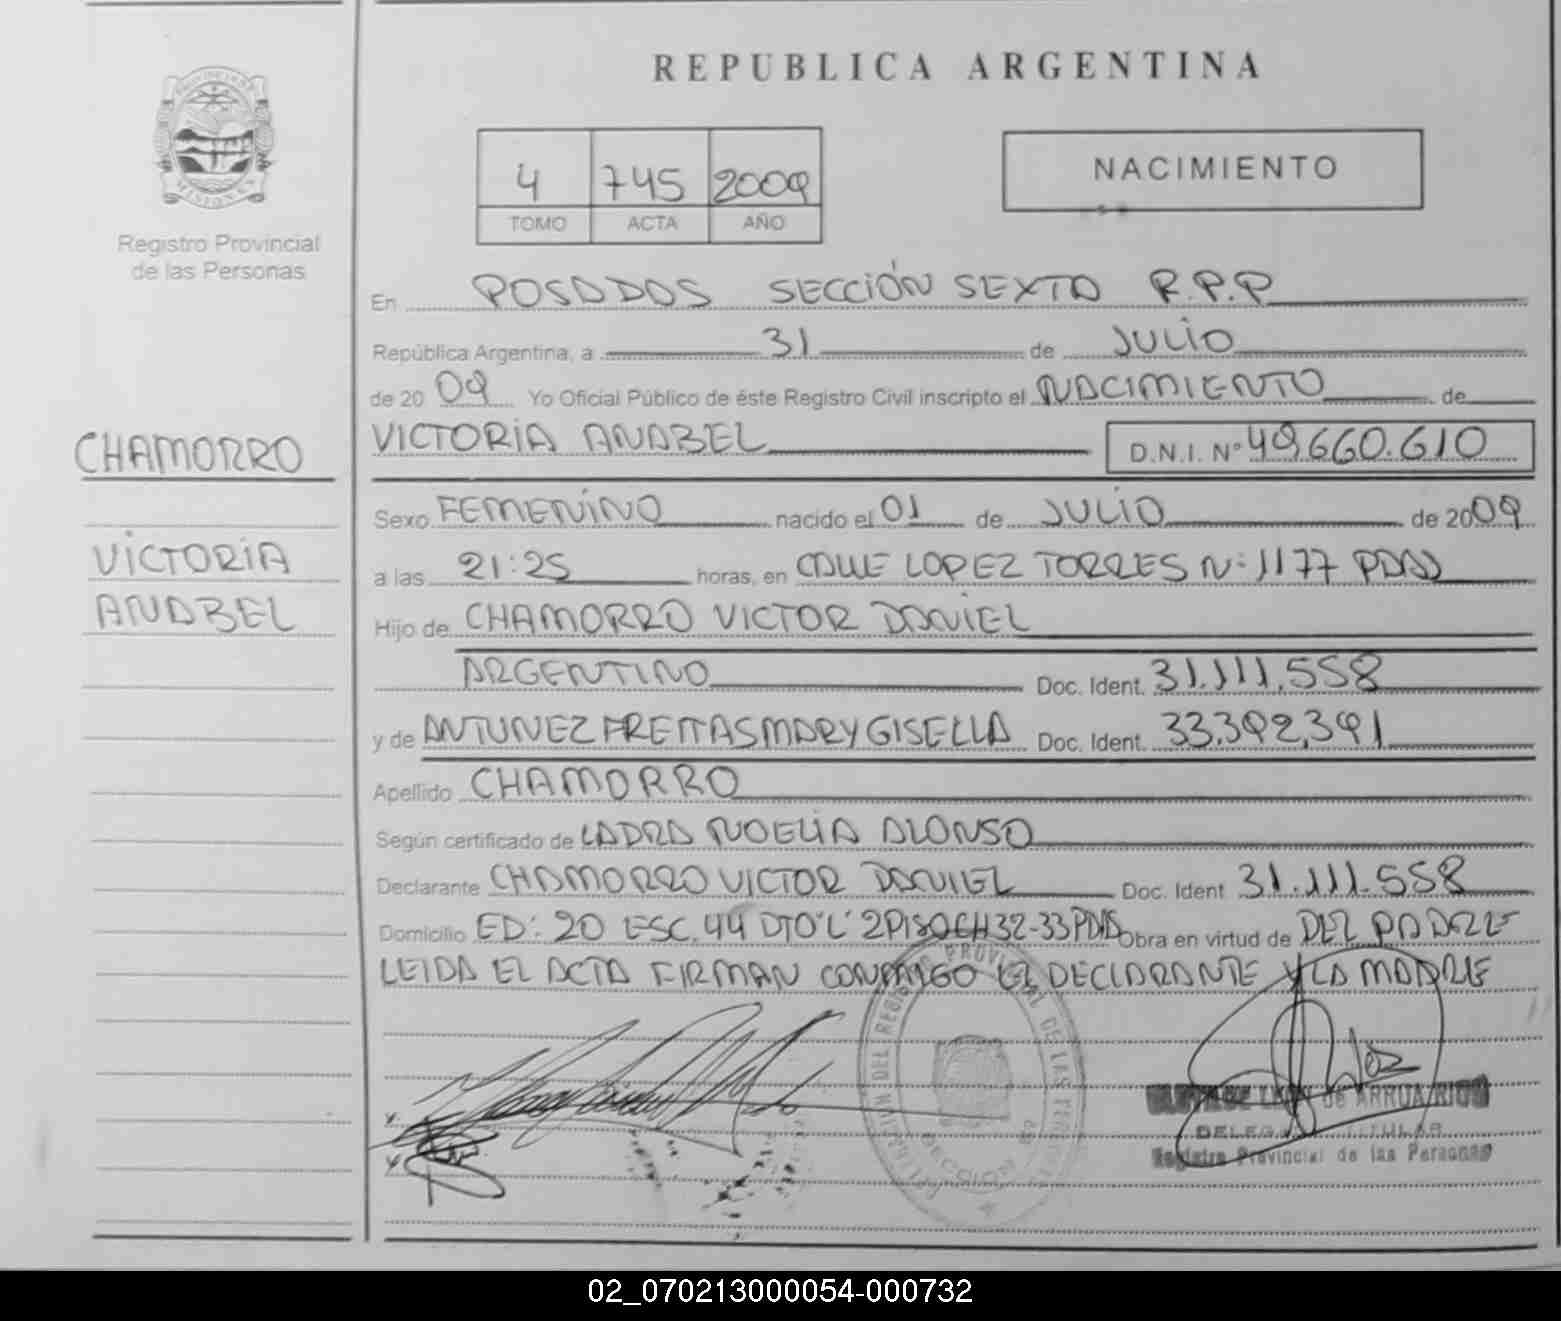 REPUBLICA ARGENTINA
PROVINCIA DE
MISIONES
Registro Provincial
de las Personas
4 745 2009
TOMO ACTA AÑO
NACIMIENTO
En POSADAS SECCIÓN SEXTA R.P.P
República Argentina, a 31 de JULIO
de 2009 Yo Oficial Público de éste Registro Civil inscripto el NACIMIENTO de
CHAMORRO
VICTORIA ANABEL D.N.I. Nº 49.660.610
Sexo FEMENINO nacido el 01 de JULIO de 2009
VICTORIA
ANABEL
a las 21:25 horas, en CALLE LOPEZ TORRES Nº: 1177 PDAS
Hijo de CHAMORRO VICTOR DANIEL
ARGENTINO Doc. Ident. 31.111.558
y de ANTUNEZ FREITAS MARY GISELLA Doc. Ident. 33.392.391
Apellido CHAMORRO
Según certificado de LADRA NOELIA ALONSO
Declarante CHAMORRO VICTOR DANIEL Doc. Ident 31.111.558
Domicilio ED: 20 ESC. 44 DTO "L" 2 PISO CH 32-33 PDAS Obra en virtud de DEL PADRE
LEIDA EL ACTA FIRMAN CONMIGO EL DECLARANTE Y LA MADRE
DEL REGISTRO PROVINCIAL DE LAS PERSONAS
SECCION 6ª
DE ARRUA RIOS
DELEGADA TITULAR
Registro Provincial de las Personas
02_070213000054-000732